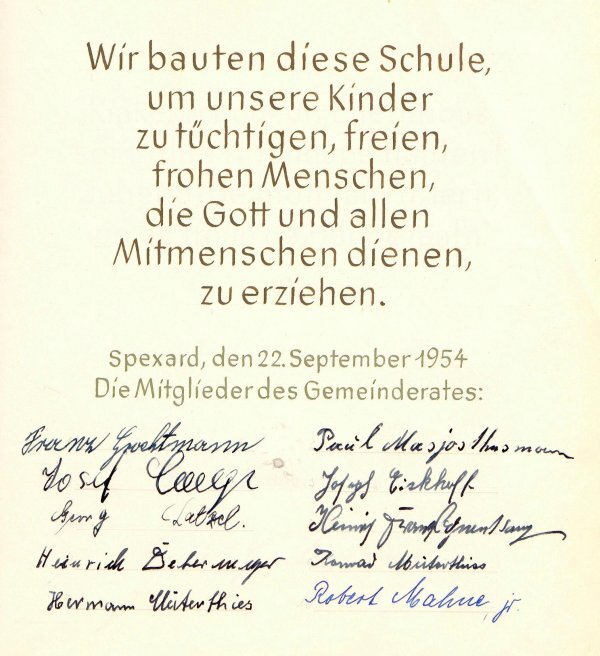 Wir bauten diese Schule,
um unsere Kinder
zu tüchtigen, freien,
frohen Menschen,
die Gott und allen
Mitmenschen dienen,
zu erziehen.
Spexard, den 22. September 1954
Die Mitglieder des Gemeinderates:
Franz
Paul Masjosthusmann
Josef
Joseph Eickhoff
Georg
Heinrich
Konrad Müterthies
Hermann Müterthies
Robert Mahne, jr.